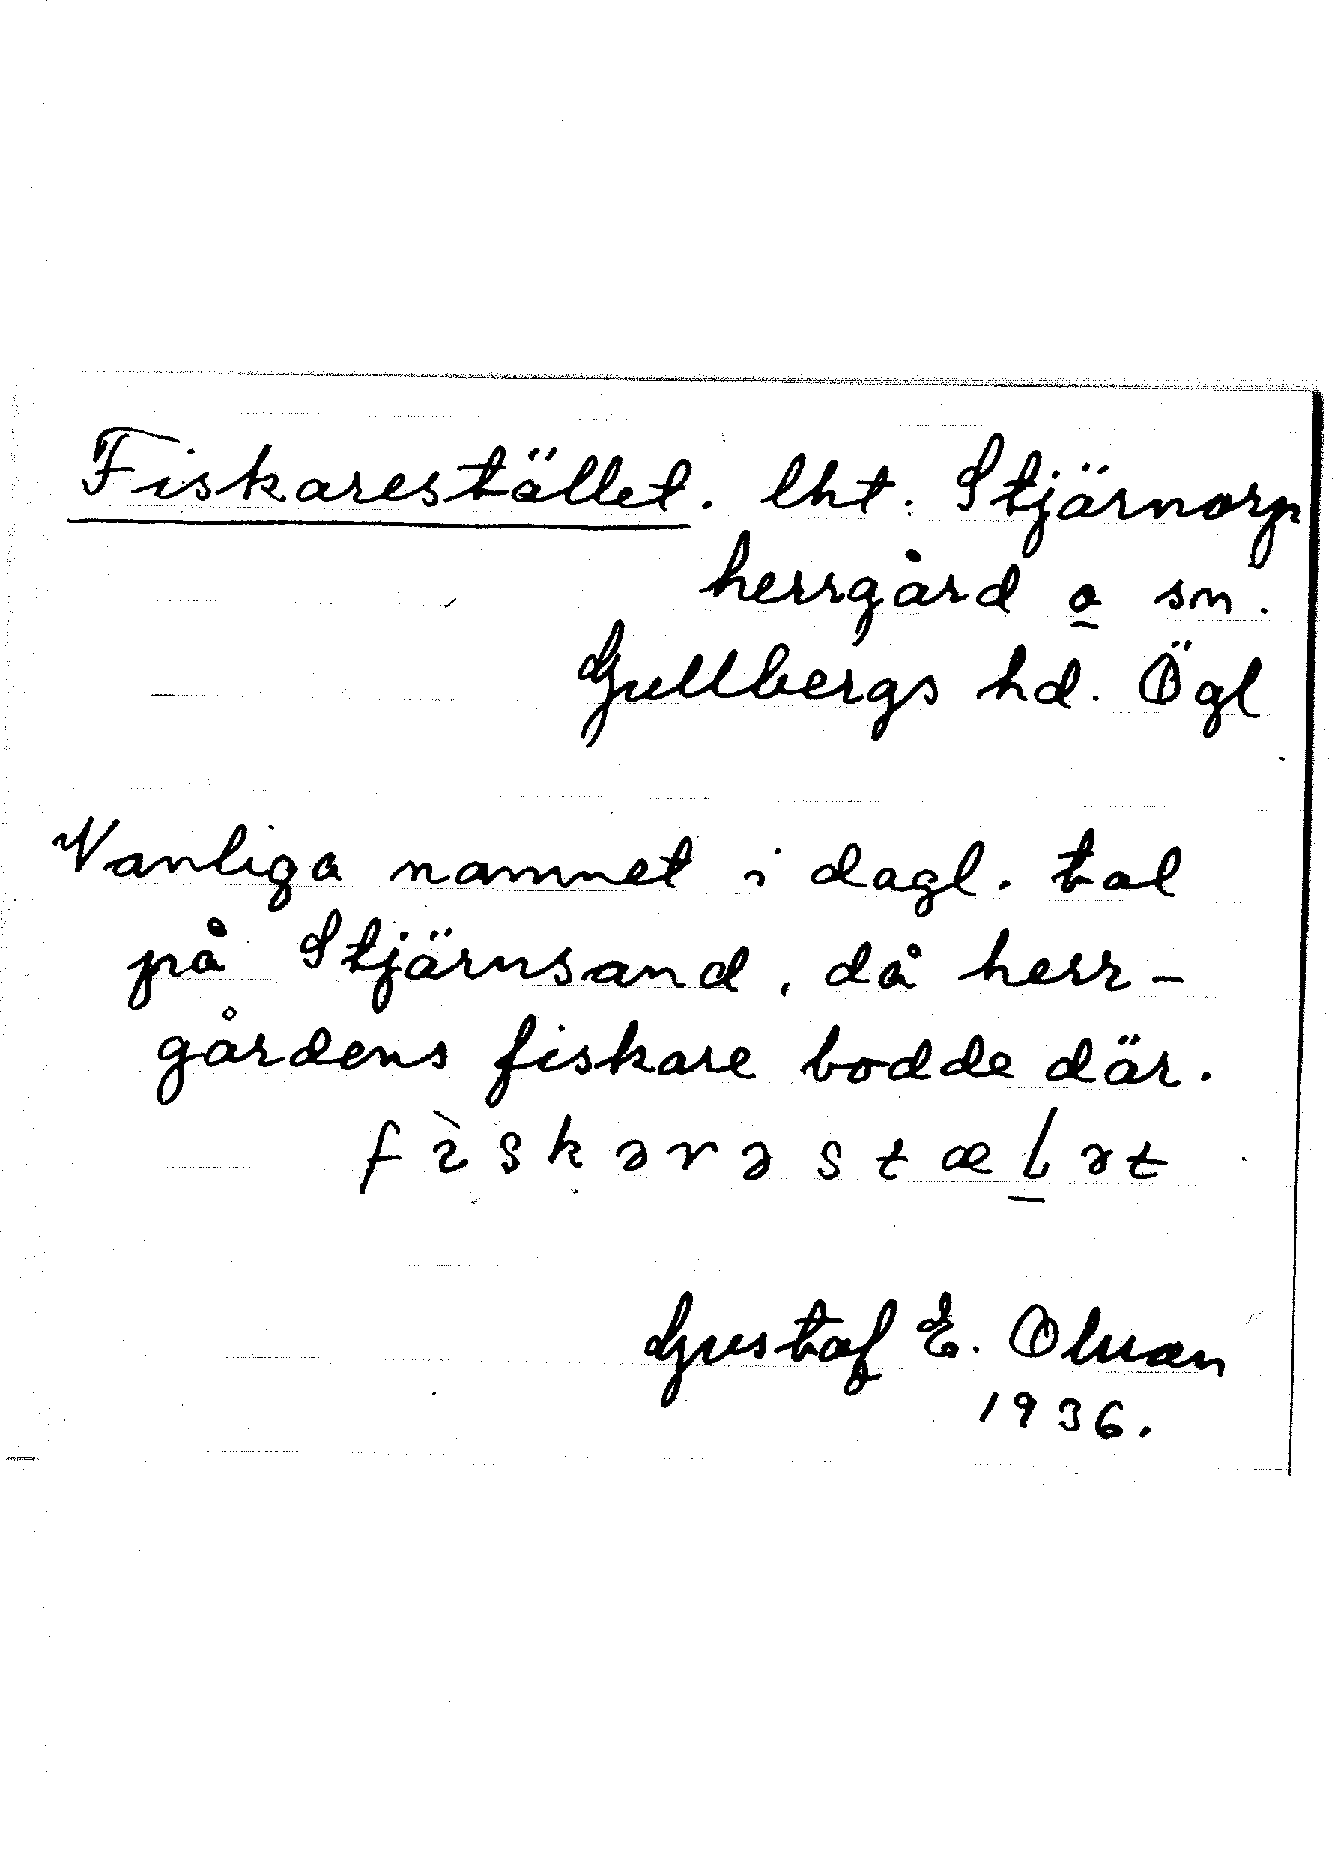 Fiskarestället. lht. Stjärnorp
herrgård o sn.
Gullbergs hd. Ögl
Vanliga namnet i dagl. tal
på Stjärnsand, då herr-
gårdens fiskare bodde där.
fìskərəstælət
Gustaf E. Olman
1936.